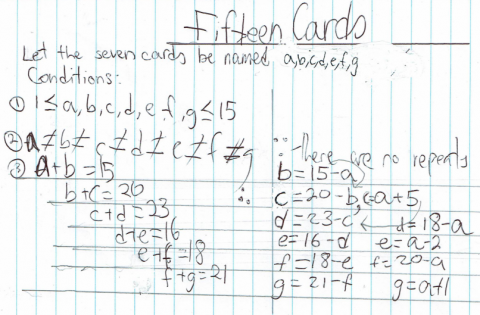 Fifteen Cards
Let the seven cards be named a,b,c,d,e,f,g
Conditions:
① 1≤a,b,c,d,e,f,g≤15
② a≠b≠c≠d≠e≠f≠g ∵ there are no repeats
③ a+b=15 b=15-a
b+c=20 ∴ c=20-b, c=a+5
c+d=23 d=23-c d=18-a
d+e=16 e=16-d e=a-2
e+f=18 f=18-e f=20-a
f+g=21 g=21-f g=a+1